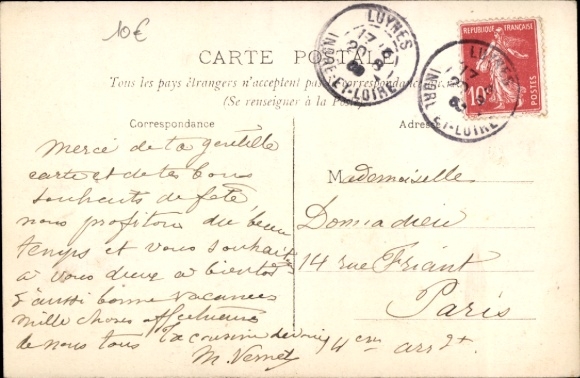 10€
CARTE POSTALE
Tous les pays étrangers n'acceptent pas la correspondance
(Se renseigner à la Poste)
Correspondance
Adresse
LUYNES
17
20 8
INDRE-ET-LOIRE
RÉPUBLIQUE FRANÇAISE
10
POSTES
LUYNES
17
INDRE-ET-LOIRE
Merci de ta gentille
carte et de tes bons
souhaits de fête
nous profitons du beau
temps et vous souhaite
a vous deux a bientot
d'aussi bonne vacances
mille choses affectueuses
de nous tous ta cousine
M. Vernet
Mademoiselle
Donnadieu
14 rue Friant
Paris